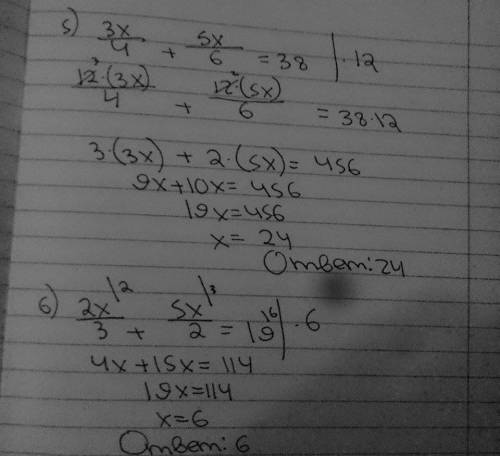 5) 3x/4 + 5x/6 = 38 | · 12
12³·(3x)/4 + 12²·(5x)/6 = 38·12
3·(3x) + 2·(5x) = 456
9x+10x = 456
19x=456
x = 24
Ответ: 24
6) 2x\2/3 + 5x\3/2 = 19\6 | · 6
4x+15x = 114
19x=114
x=6
Ответ: 6